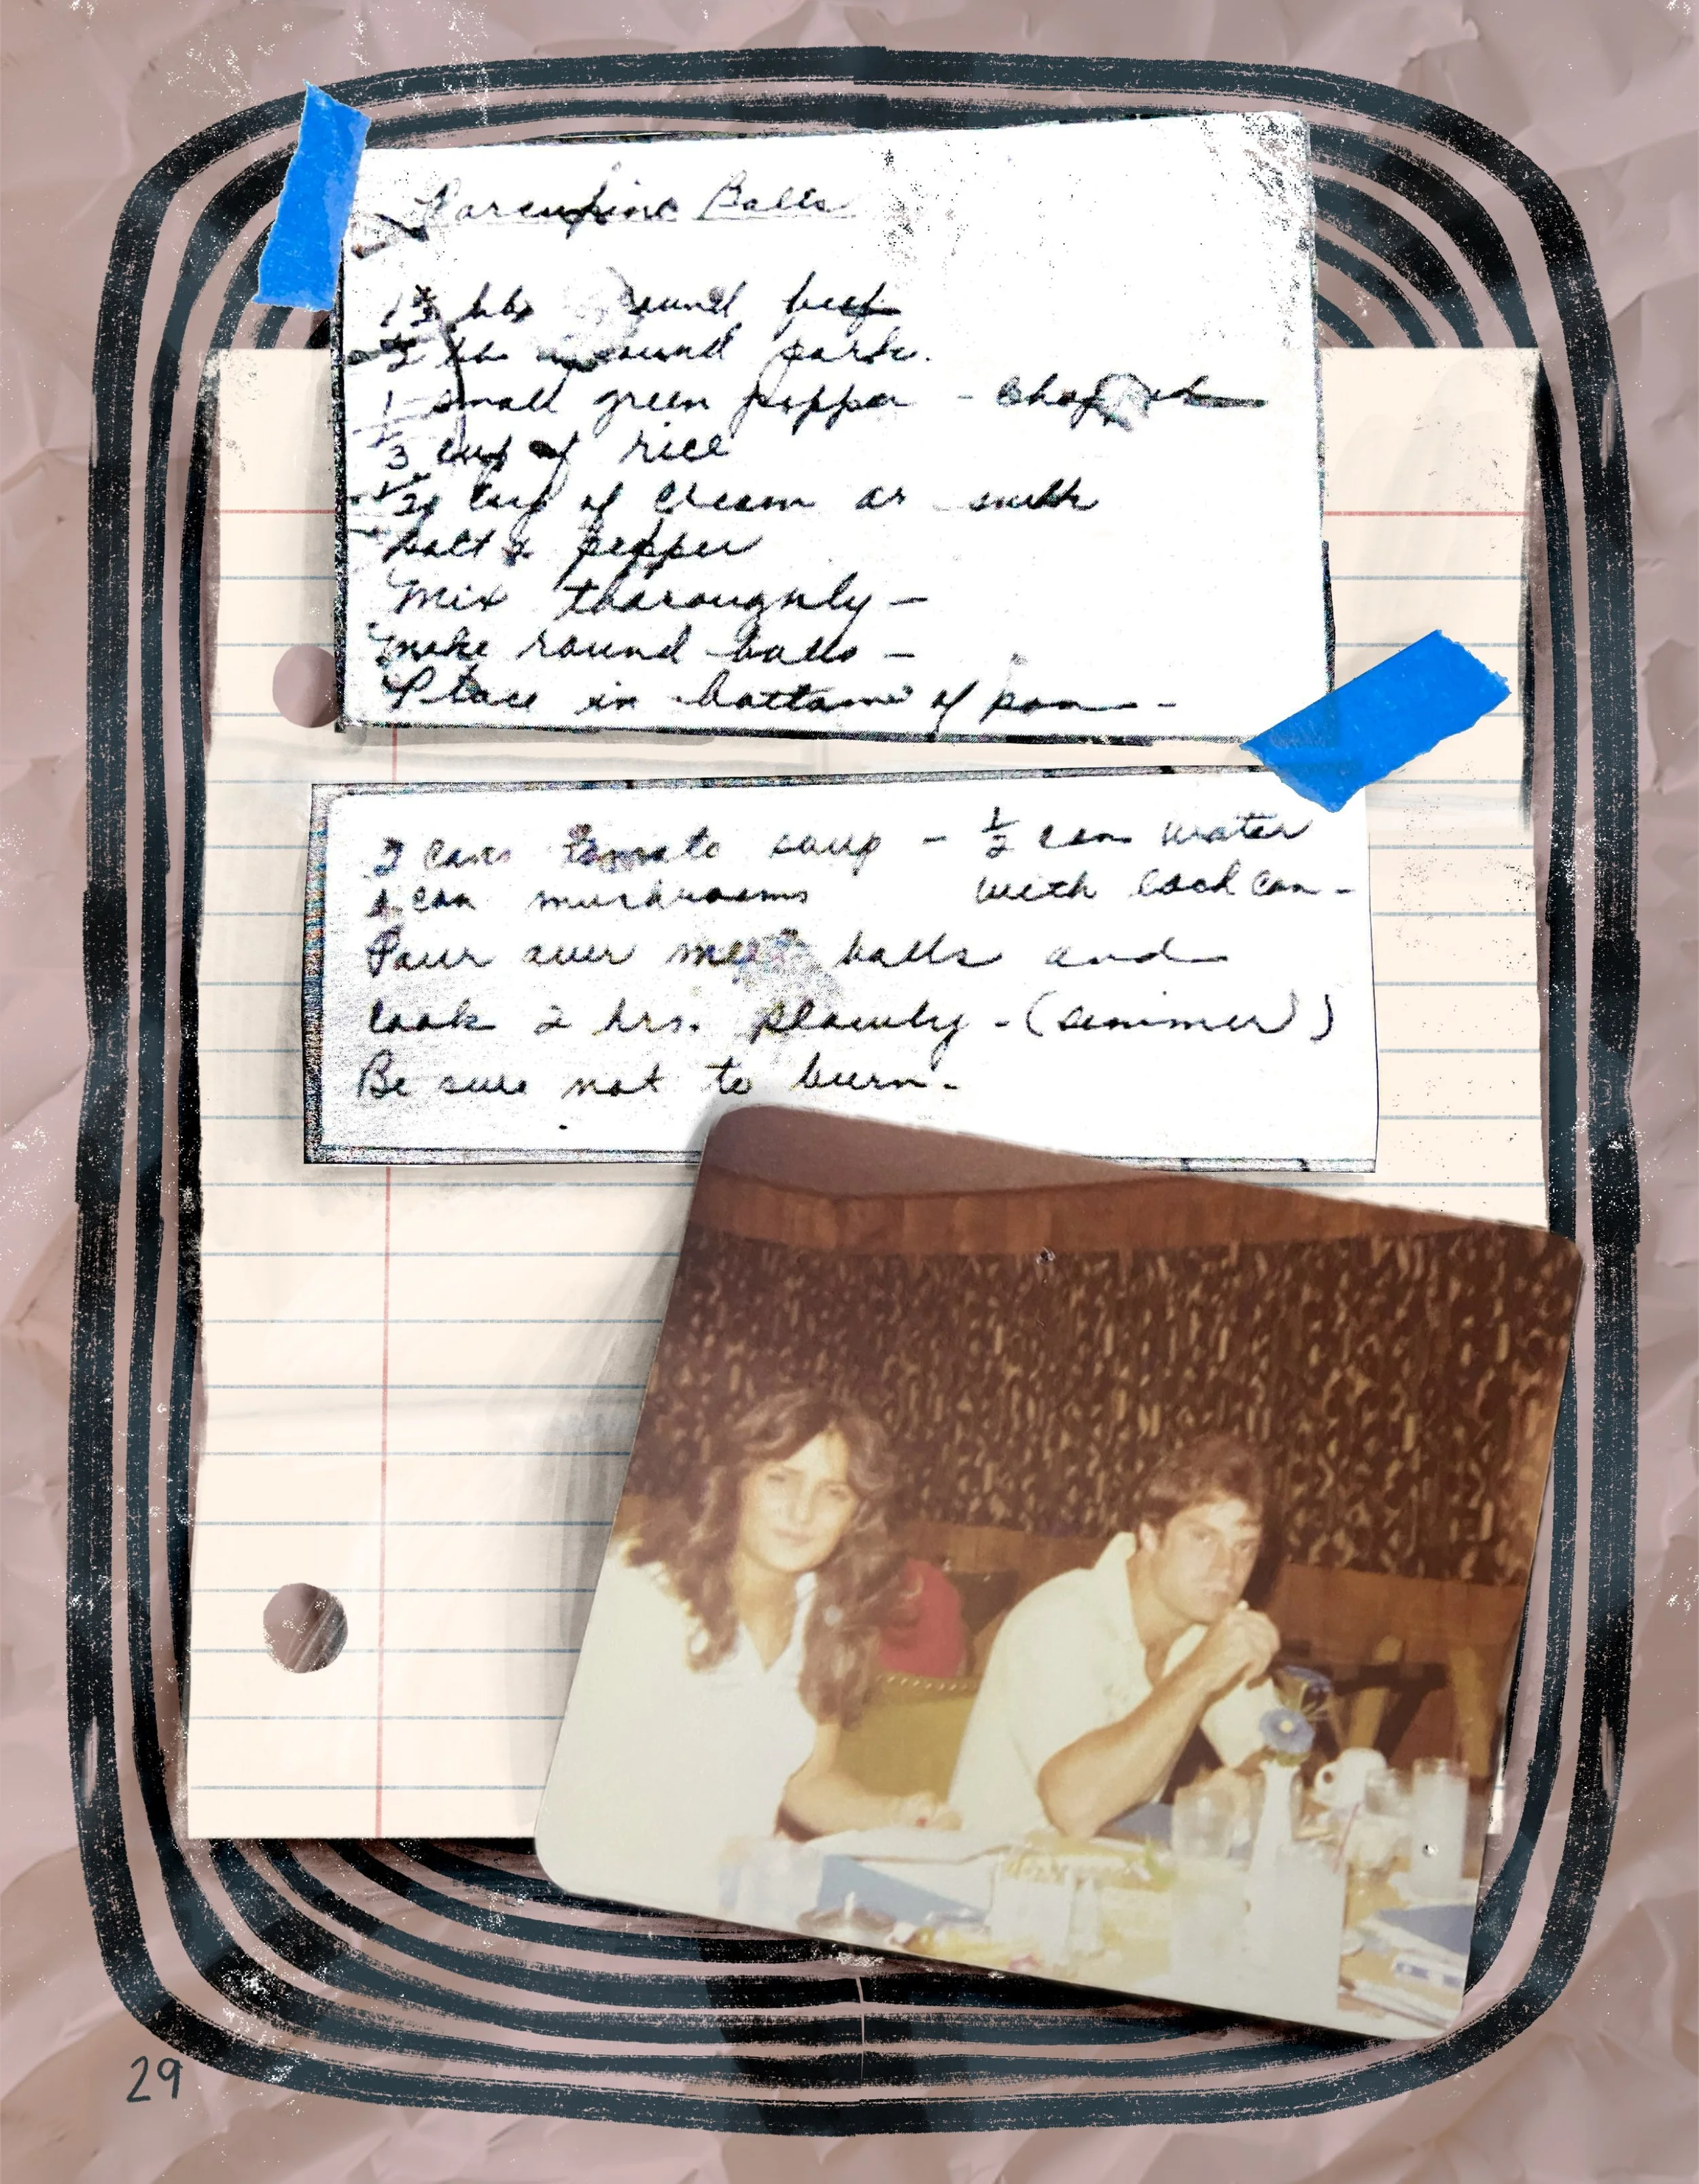 Porcupine Balls
1½ lbs ground beef
½ lb ground pork.
1 small green pepper - chopped
⅓ cup of rice
½ cup of cream or milk
Salt & pepper
Mix thoroughly -
Make round balls -
Place in bottom of pan -
2 cans tomato soup - ½ can water
1 can mushrooms with each can -
Pour over meat balls and
Cook 2 hrs. slowly - (simmer)
Be sure not to burn.
29